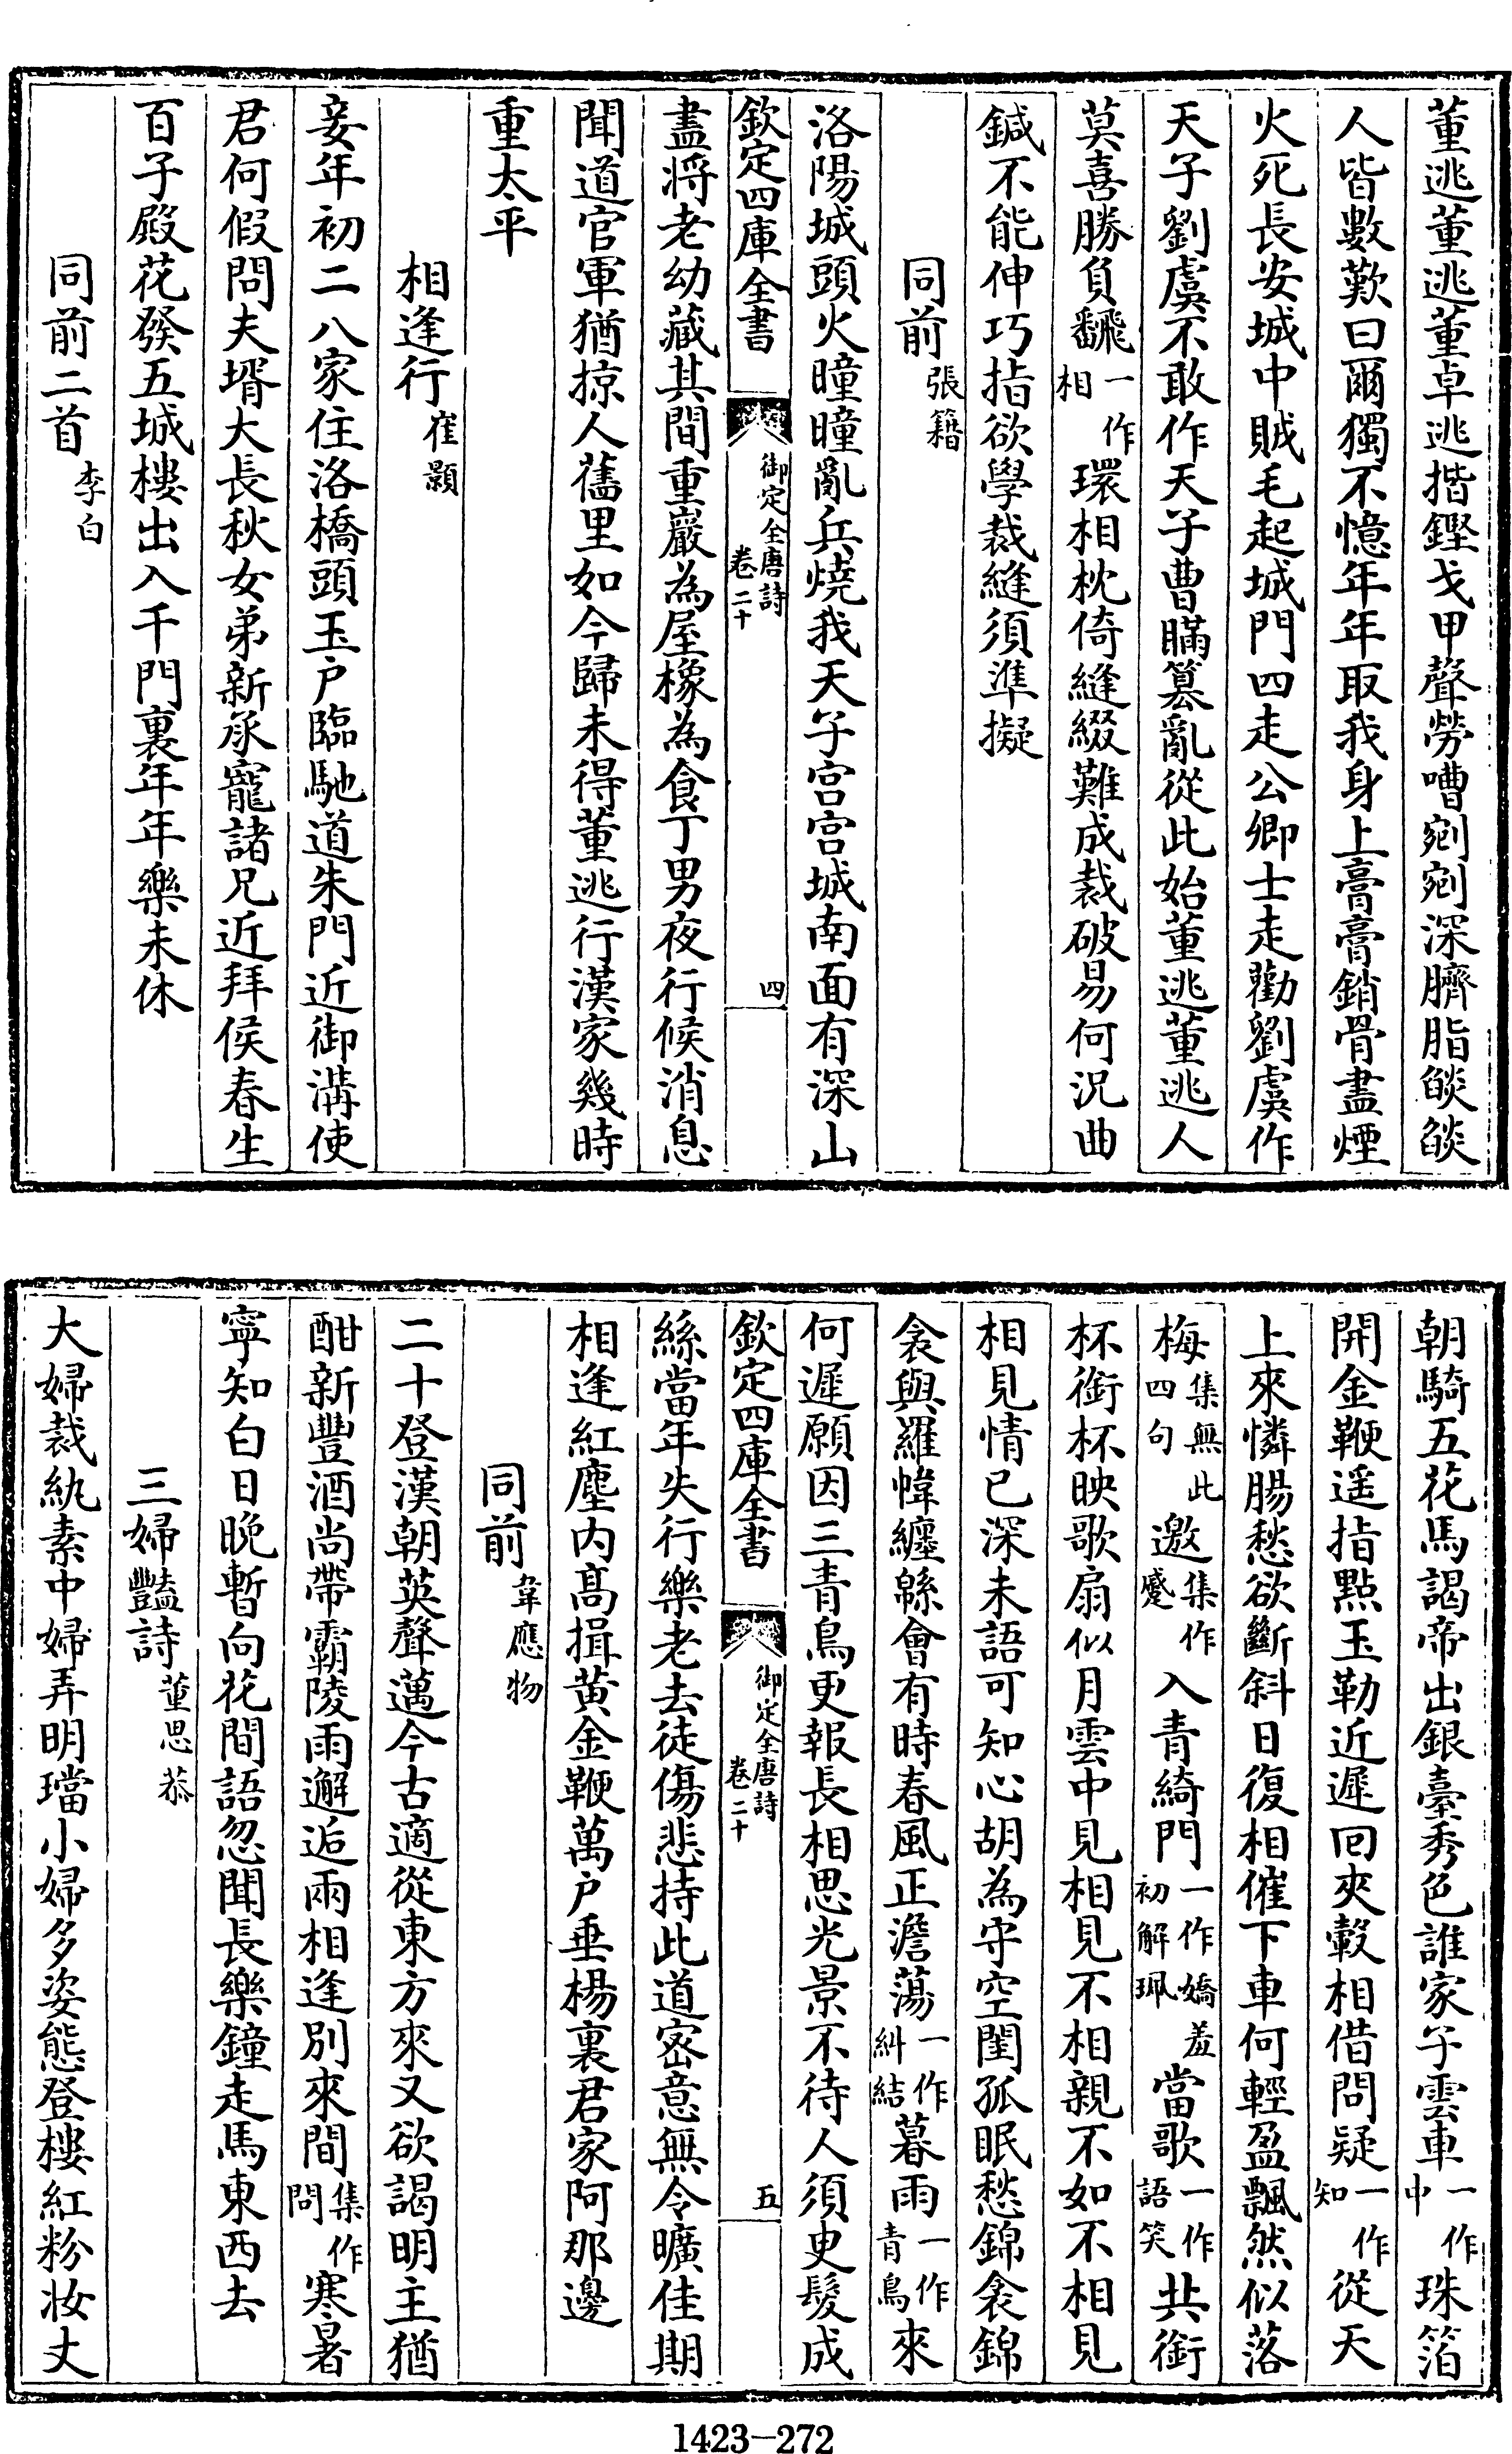 董逃董逃董卓逃揩鏗戈甲聲勞嘈剜剜深臍脂燄燄
人皆數歎曰爾獨不憶年年取我身上膏膏銷骨盡煙
火死長安城中賊毛起城門四走公卿士走勸劉虞作
天子劉虞不敢作天子曹瞞簒亂從此始董逃董逃人
莫喜勝負翻一作相環相枕倚縫綴難成裁破易何況曲
鍼不能伸巧指欲學裁縫須準擬
同前張籍
洛陽城頭火曈曈亂兵燒我天子宫宫城南面有深山
欽定四庫全書 御定全唐詩卷二十 四
盡將老幼藏其間重巖為屋橡為食丁男夜行候消息
聞道官軍猶掠人舊里如今歸未得董逃行漢家幾時
重太平
相逢行崔顥
妾年初二八家住洛橋頭玉戸臨馳道朱門近御溝使
君何假問夫壻大長秋女弟新承寵諸兄近拜侯春生
百子殿花發五城樓出入千門裏年年樂未休
同前二首李白
朝騎五花馬謁帝出銀臺秀色誰家子雲車一作中珠箔
開金鞭遥指點玉勒近遲回夾轂相借問疑一作知從天
上來憐腸愁欲斷斜日復相催下車何輕盈飄然似落
梅集無此四句邀集作蹙入青綺門一作嬌羞初解珮當歌一作語笑共銜
杯銜杯映歌扇似月雲中見相見不相親不如不相見
相見情已深未語可知心胡為守空閨孤眠愁錦衾錦
衾與羅幃纏緜會有時春風正澹蕩一作糾結暮雨一作青鳥來
何遲願因三青鳥更報長相思光景不待人須㬰髮成
欽定四庫全書 御定全唐詩卷二十 五
絲當年失行樂老去徒傷悲持此道密意無令曠佳期
相逢紅塵内髙揖黄金鞭萬户垂楊裏君家阿那邊
同前韋應物
二十登漢朝英聲邁今古適從東方來又欲謁明主猶
酣新豐酒尚帶霸陵雨邂逅兩相逢別來間集作問寒暑
寧知白日晚暫向花間語忽聞長樂鐘走馬東西去
三婦豔詩董思恭
大婦裁紈素中婦弄明璫小婦多姿態登樓紅粉妝丈
1423-272